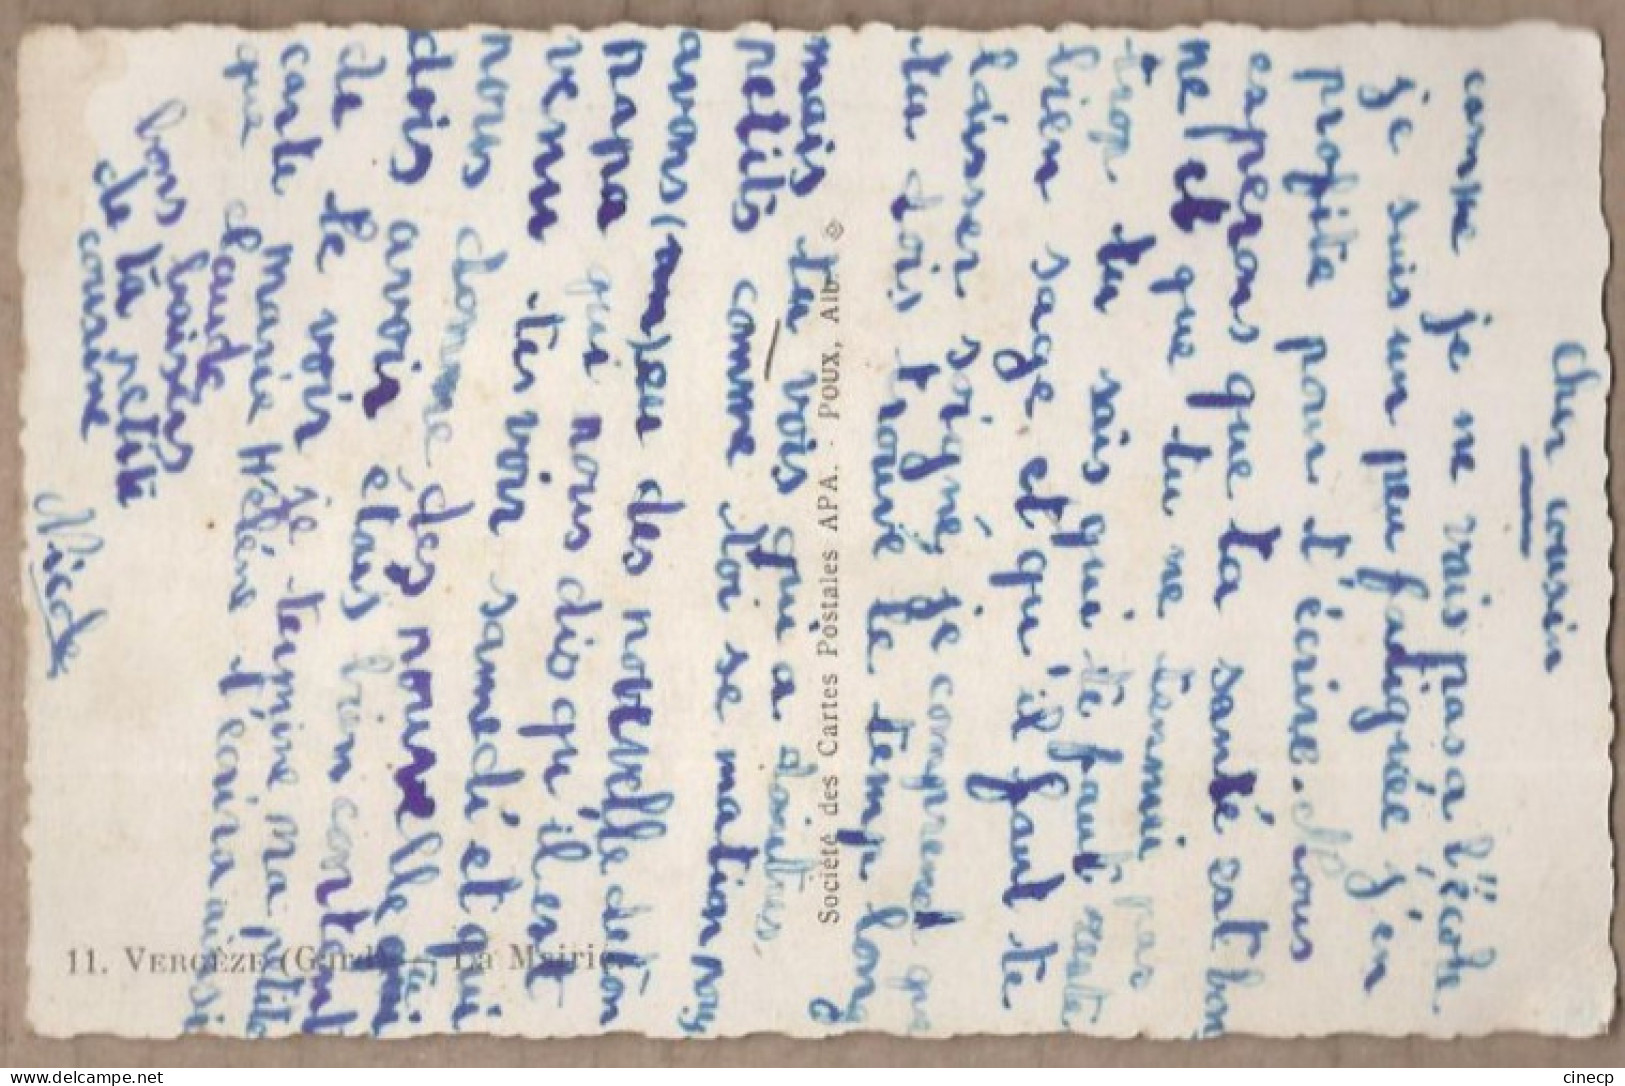 Cher cousin
comme je ne vais pas a l'école.
je suis un peu fatiguée j'en
profite pour t'écrire. Nous
esperons que ta santé est bon
ne et que tu ne t'ennui pas
trop tu sais qui te faut reste
bien sage et qu'il faut te
laisser soigné, je comprend que
tu dois trouvé le temp long
mais tu vois qui a d'autres
petits comme toi se matin nous
avons eu des nouvelle de ton
papa qui nous dis qu'il est
venu tes voir samedi et qui
nous donne des nouvelle qui
dois avoir
de te voir étais bien content
carte je termine ma petite
que Marie Hélène t'écira aussi
claude
bons baisers
de ta petite
cousine
Nicole
Société des Cartes Postales APA. - POUX, Albi
11. VERGÈZE (Gard) — La Mairie
cinecp